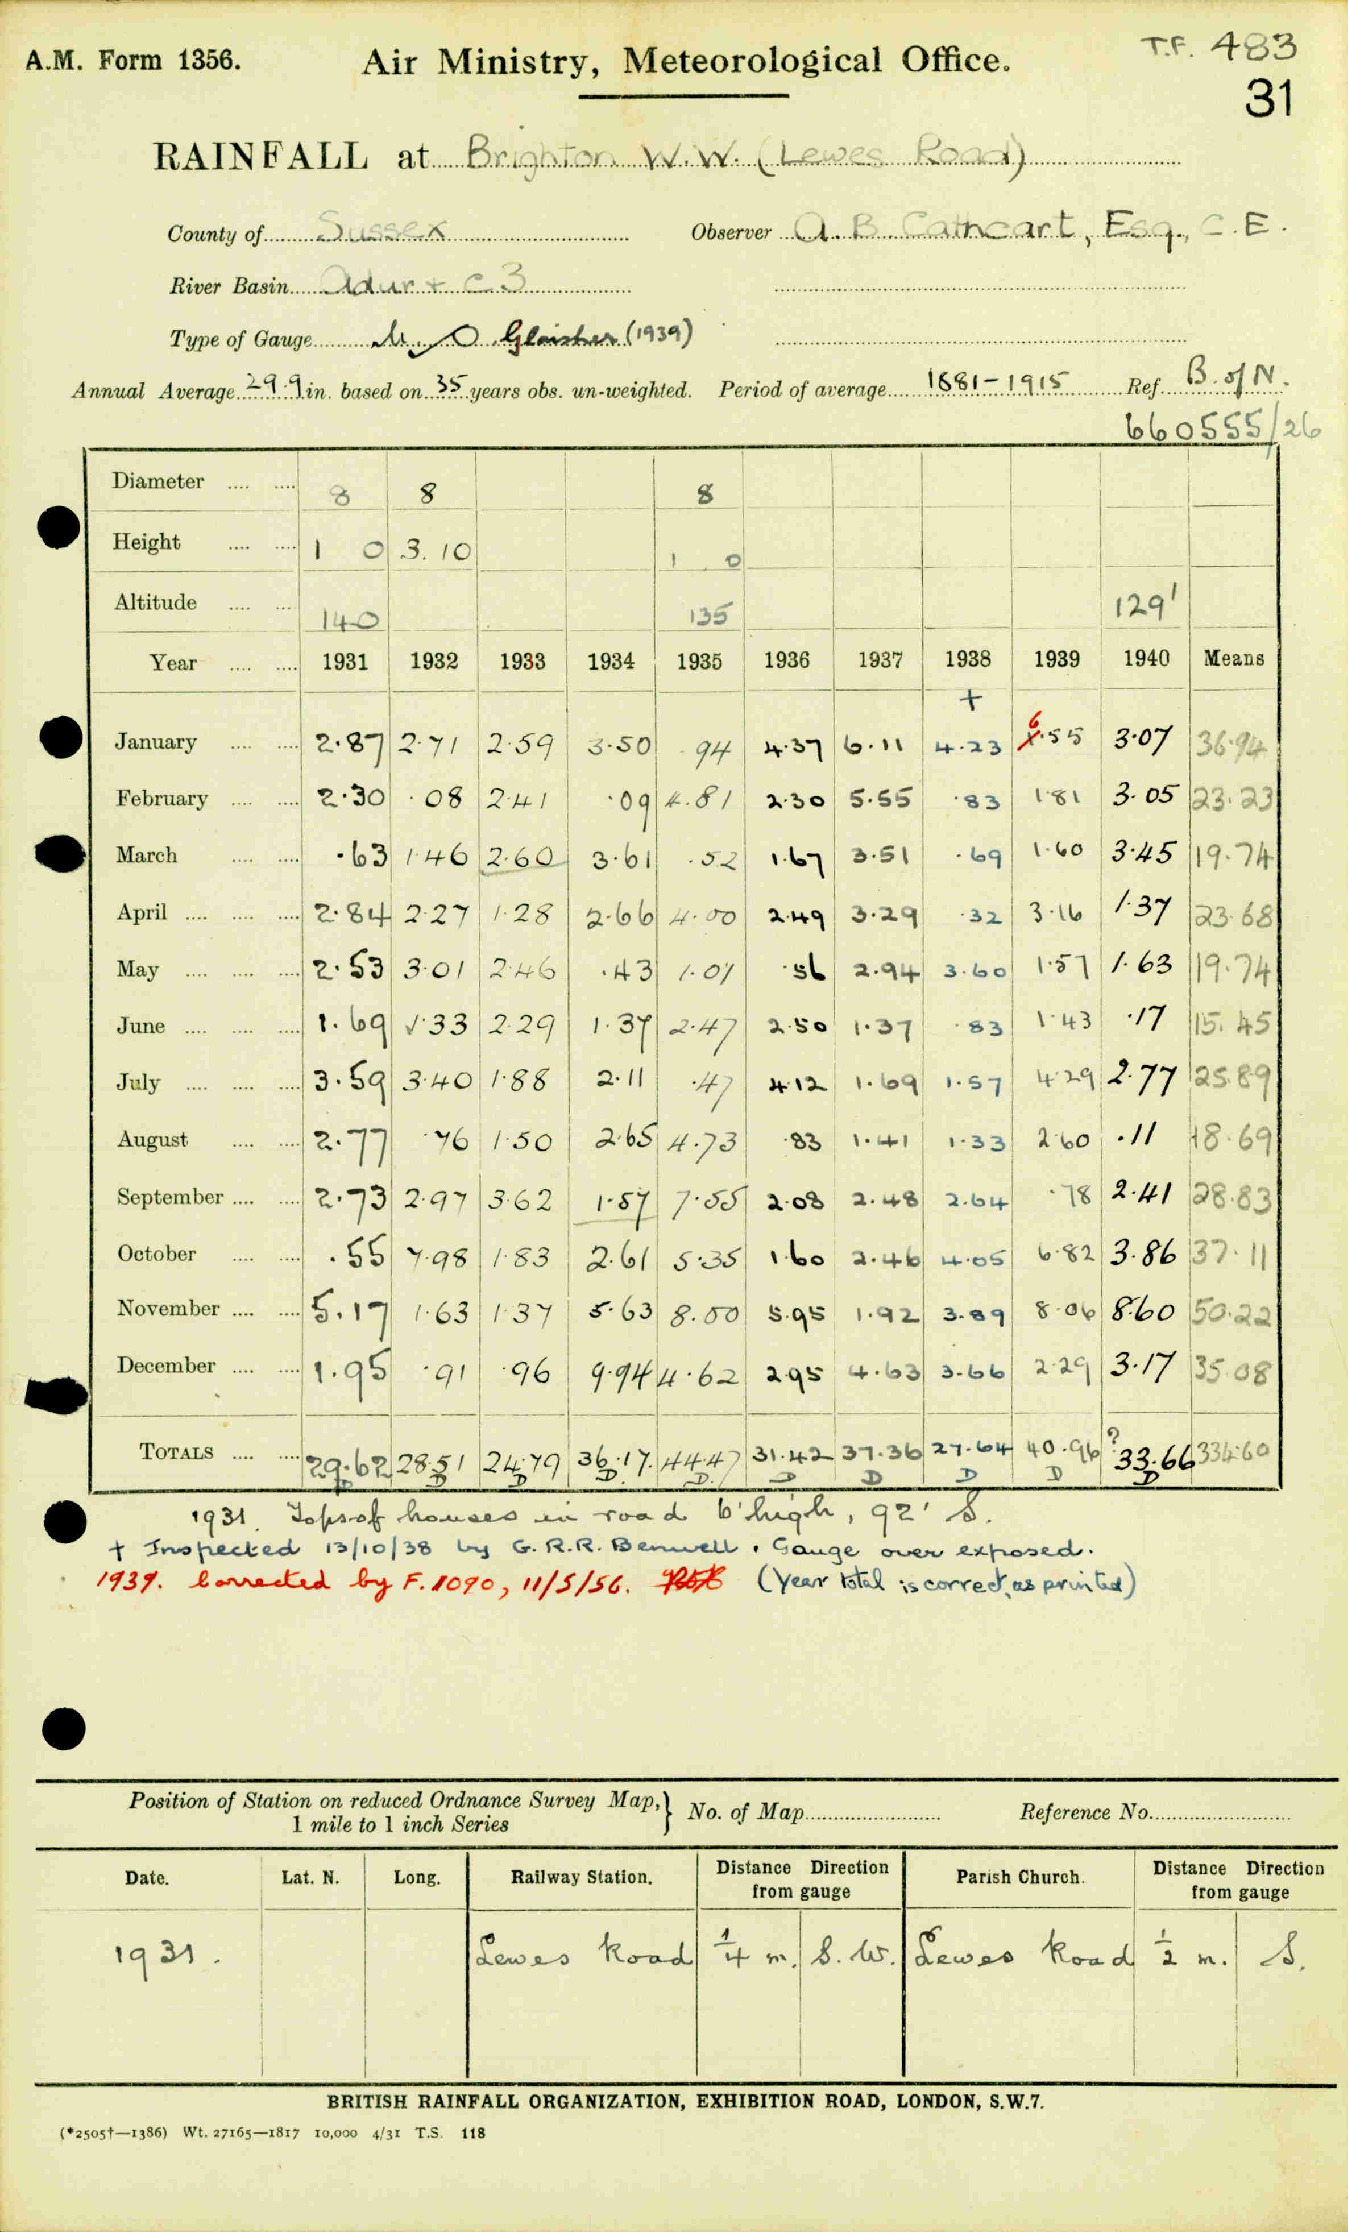 A.M. Form 1356.
Air Ministry, Meteorological Office.
T.F. 483
31
RAINFALL at Brighton W.W. (Lewes Road)
County of Sussex Observer A. B. Cathcart, Esq., C.E.
River Basin Adur + C3
Type of Gauge M O Glaisher (1939)
Annual Average 29.9 in. based on 35 years obs. un-weighted. Period of average 1881-1915 Ref. B. of N.
660555/26
Diameter 8 8 8
Height 1 0 3.10 1 0
Altitude 140 135 129'
Year 1931 1932 1933 1934 1935 1936 1937 1938 1939 1940 Means
+
January 2.87 2.71 2.59 3.50 .94 4.37 6.11 4.23 6.55 3.07 36.94
February 2.30 .08 2.41 .09 4.81 2.30 5.55 .83 1.81 3.05 23.23
March .63 1.46 2.60 3.61 .52 1.67 3.51 .69 1.60 3.45 19.74
April 2.84 2.27 1.28 2.66 4.00 2.49 3.29 .32 3.16 1.37 23.68
May 2.53 3.01 2.46 .43 1.01 .56 2.94 3.60 1.57 1.63 19.74
June 1.69 1.33 2.29 1.37 2.47 2.50 1.37 .83 1.43 .17 15.45
July 3.59 3.40 1.88 2.11 .47 4.12 1.69 1.57 4.29 2.77 25.89
August 2.77 .76 1.50 2.65 4.73 .83 1.41 1.33 2.60 .11 18.69
September 2.73 2.97 3.62 1.57 7.55 2.08 2.48 2.64 .78 2.41 28.83
October .55 7.98 1.83 2.61 5.35 1.60 2.46 4.05 6.82 3.86 37.11
November 5.17 1.63 1.37 5.63 8.00 5.95 1.92 3.89 8.06 8.60 50.22
December 1.95 .91 .96 9.94 4.62 2.95 4.63 3.66 2.29 3.17 35.08
TOTALS 29.62 28.51 24.79 36.17 44.47 31.42 37.36 27.64 40.96 ? 33.66 334.60
D D D D D D D D D D
1931. Tops of houses in road 6' high, 92' S.
+ Inspected 13/10/38 by G. R. R. Benwell. Gauge over exposed.
1939. Corrected by F. 1090, 11/5/56. (Year total is correct, as printed)
Position of Station on reduced Ordnance Survey Map, } No. of Map Reference No.
1 mile to 1 inch Series
Date. Lat. N. Long. Railway Station. Distance Direction from gauge Parish Church. Distance Direction from gauge
1931. Lewes Road 1/4 m. S.W. Lewes Road 1/2 m. S.
BRITISH RAINFALL ORGANIZATION, EXHIBITION ROAD, LONDON, S.W.7.
(*2505†—1386) Wt. 27165—1817 10,000 4/31 T.S. 118